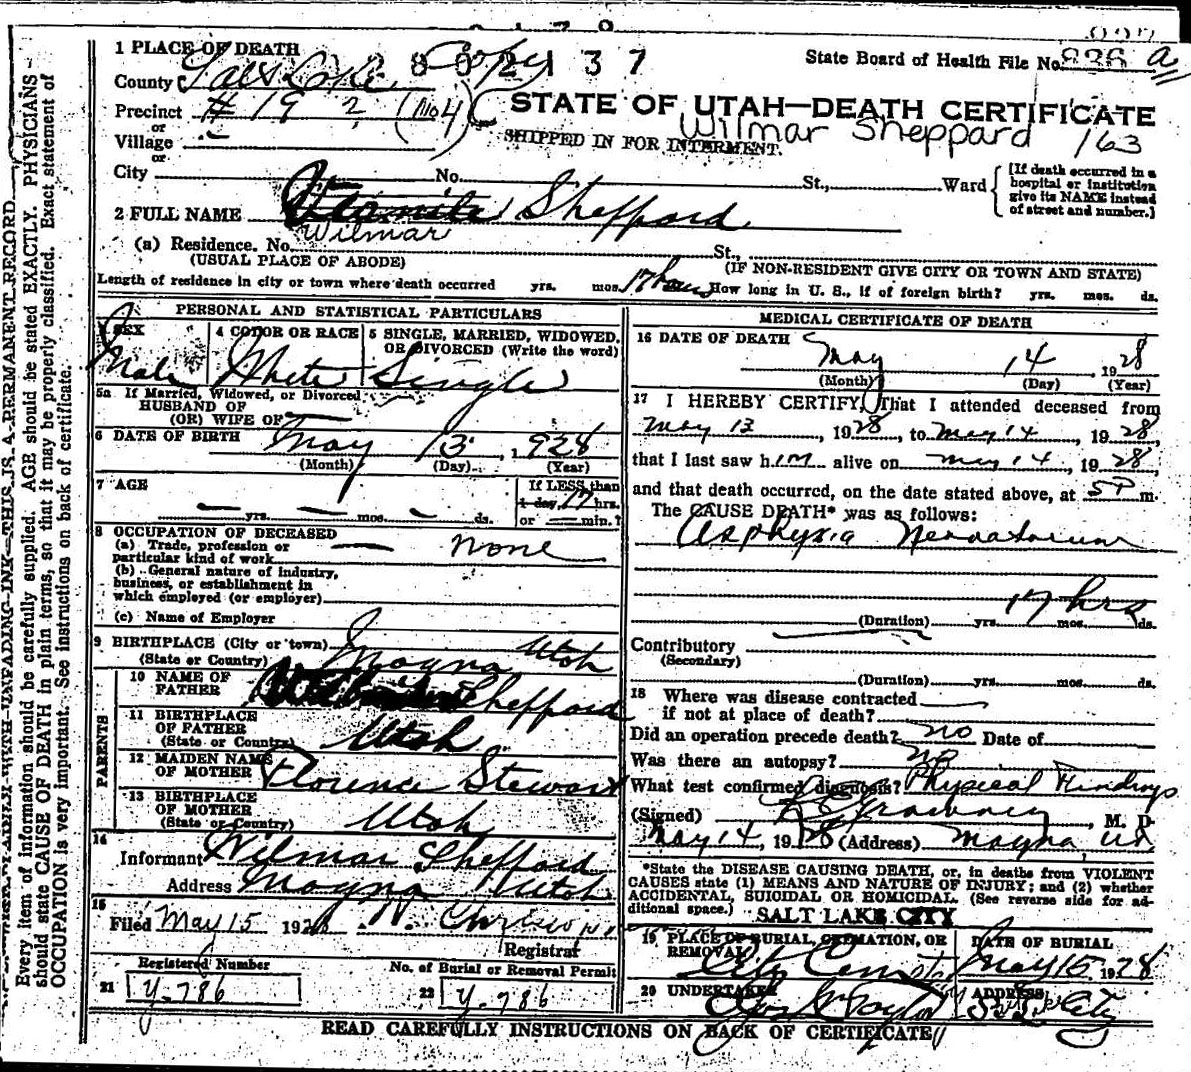 1 PLACE OF DEATH
Copy
8 0 2 1 3 7
State Board of Health File No. 826 a
County Salt Lake
Precinct # 19 2 (No 4)
STATE OF UTAH—DEATH CERTIFICATE
or
Village
SHIPPED IN FOR INTERMENT.
Wilmar Sheppard 163
or
City No. St., Ward
[If death occurred in a hospital or institution give its NAME instead of street and number.]
2 FULL NAME Sheppard
Wilmar
(a) Residence. No. St.,
(USUAL PLACE OF ABODE) (IF NON-RESIDENT GIVE CITY OR TOWN AND STATE)
Length of residence in city or town where death occurred yrs. mos. 17 hours How long in U. S., if of foreign birth? yrs. mos. ds.
PERSONAL AND STATISTICAL PARTICULARS
3 SEX 4 COLOR OR RACE 5 SINGLE, MARRIED, WIDOWED, OR DIVORCED (Write the word)
Male White Single
5a If Married, Widowed, or Divorced
HUSBAND OF
(OR) WIFE OF
6 DATE OF BIRTH May 13 1928
(Month) (Day) (Year)
7 AGE
If LESS than
1 day 17 hrs.
yrs. mos. ds. or min.?
8 OCCUPATION OF DECEASED
(a) Trade, profession or
particular kind of work none
(b) General nature of industry,
business, or establishment in
which employed (or employer)
(c) Name of Employer
9 BIRTHPLACE (City or town)
(State or Country) Magna Utah
PARENTS
10 NAME OF
FATHER Sheppard
11 BIRTHPLACE
OF FATHER
(State or Country) Utah
12 MAIDEN NAME
OF MOTHER Florence Stewart
13 BIRTHPLACE
OF MOTHER
(State or Country) Utah
14
Informant Wilmar Sheppard
Address Magna Utah
15
Filed May 15 1928
Registrar
Registered Number
21 Y-786
No. of Burial or Removal Permit
22 Y-786
MEDICAL CERTIFICATE OF DEATH
16 DATE OF DEATH
May 14, 1928
(Month) (Day) (Year)
17 I HEREBY CERTIFY, That I attended deceased from
May 13, 1928, to May 14, 1928,
that I last saw him alive on May 14, 1928,
and that death occurred, on the date stated above, at 5 P m.
The CAUSE DEATH* was as follows:
Asphyxia Neonatorum
17 hrs
(Duration) yrs. mos. ds.
Contributory
(Secondary)
(Duration) yrs. mos. ds.
18 Where was disease contracted
if not at place of death?
Did an operation precede death? no Date of
Was there an autopsy? no
What test confirmed diagnosis? Physical Findings
(Signed) , M. D.
May 14, 1928 (Address) Magna, Ut
*State the DISEASE CAUSING DEATH, or, in deaths from VIOLENT
CAUSES state (1) MEANS AND NATURE OF INJURY; and (2) whether
ACCIDENTAL, SUICIDAL OR HOMICIDAL. (See reverse side for additional space.)
SALT LAKE CITY
19 PLACE OF BURIAL, CREMATION, OR
REMOVAL
City Cemetery
DATE OF BURIAL
May 15 1928
20 UNDERTAKER
Taylor
ADDRESS
City
READ CAREFULLY INSTRUCTIONS ON BACK OF CERTIFICATE
Every item of information should be carefully supplied. AGE should be stated EXACTLY. PHYSICIANS
should state CAUSE OF DEATH in plain terms, so that it may be properly classified. Exact statement of
OCCUPATION is very important. See instructions on back of certificate.